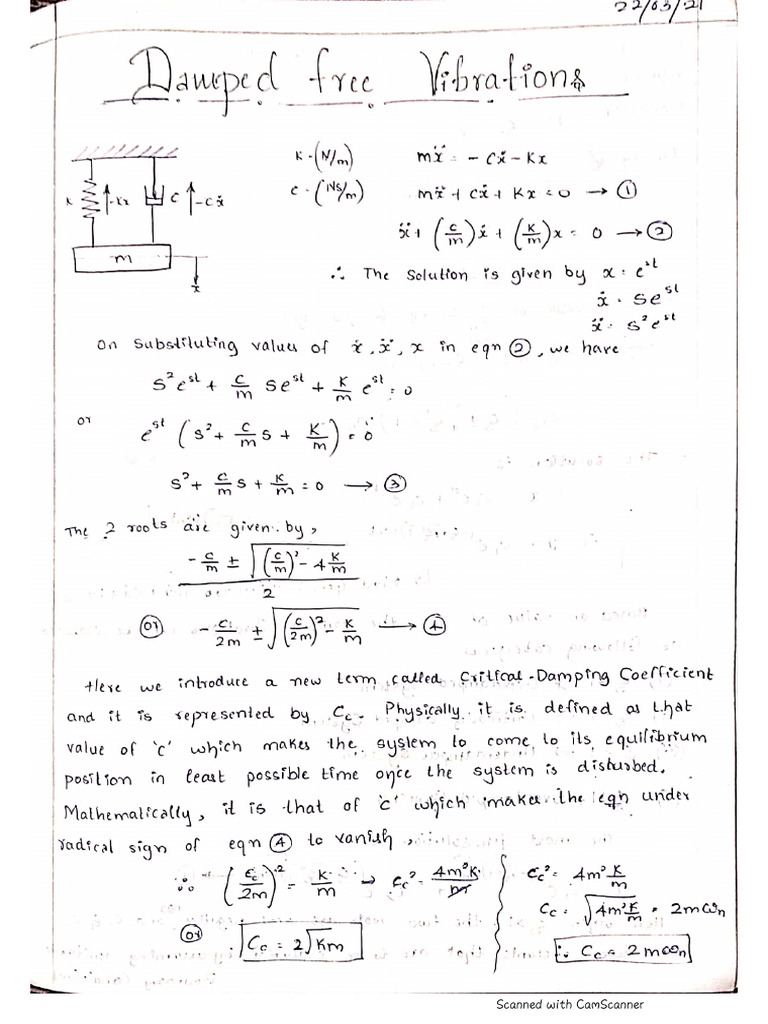 22/03/21
Damped free Vibrations
K -Kx C -Cẋ
m
x
K - (N/m)
C - (NS/m)
mẍ = - Cẋ - Kx
mẍ + Cẋ + Kx = 0 → ①
ẍ + (C/m)ẋ + (K/m)x = 0 → ②
∴ The solution is given by x = e^st
ẋ = Se^st
ẍ = S²e^st
On Substituting values of ẋ, ẍ, x in eqn ②, we have
S²e^st + C/m Se^st + K/m e^st = 0
or
e^st (S² + C/m S + K/m) = 0
S² + C/m S + K/m = 0 → ③
The 2 roots are given by,
(-C/m ± √((C/m)² - 4 K/m)) / 2
(or) -C/2m ± √((C/2m)² - K/m) → ④
Here we introduce a new term called Critical-Damping Coefficient
and it is represented by Cc. Physically it is defined as that
value of 'c' which makes the system to come to its equilibrium
position in least possible time once the system is disturbed.
Mathematically, it is that of 'c' which makes the eqn under
radical sign of eqn ④ to vanish,
∴ (Cc/2m)² = K/m → Cc² = 4m²K/m
(or) Cc = 2√Km
Cc² = 4m² K/m
Cc = √(4m² K/m) = 2mωn
∴ Cc = 2mωn
Scanned with CamScanner